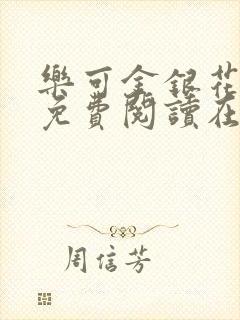 樂可金銀花
免費閱讀在
周信芳